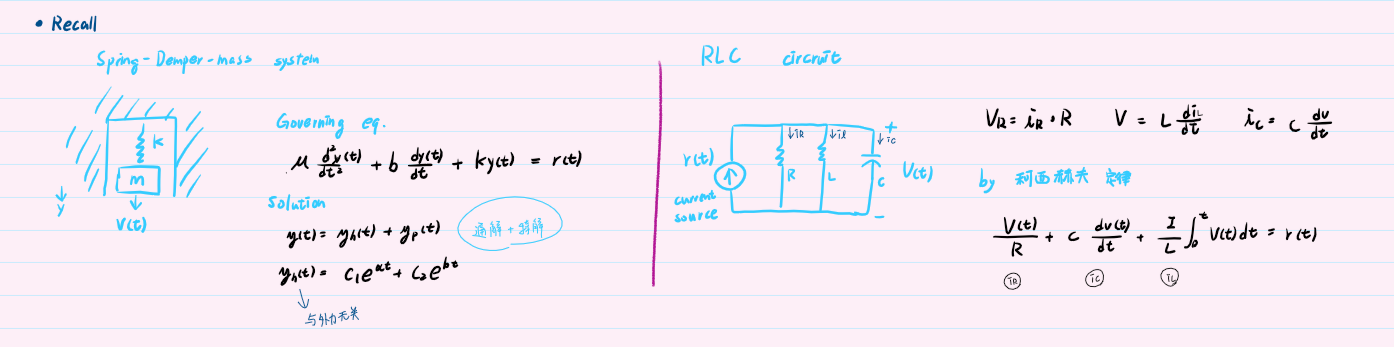 • Recall
Spring-Demper-mass system
K
m
y
V(t)
Governing eq.
M d²y(t)/dt² + b dy(t)/dt + ky(t) = r(t)
Solution
y(t) = yh(t) + yp(t)
通解 + 特解
yh(t) = C₁e^at + C₂e^bt
与外力无关
RLC circuit
r(t)
current
source
↓iR
↓il
↓ic
+
R
L
C
V(t)
−
VR = iR • R V = L diL/dt ic = C dv/dt
by 柯西赫夫 定律
V(t)/R + C dv(t)/dt + I/L ∫₀^t V(t)dt = r(t)
iR ic iL